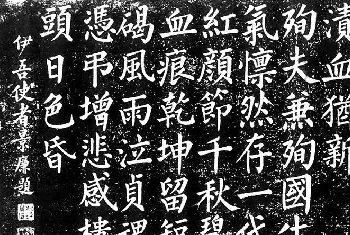 漬血猶新
殉夫兼殉國生
氣懍然存一代
紅顏節千秋碧
血痕乾坤留短
碣風雨泣貞魂
憑弔增悲感樓
頭日色昏
伊吾使者景廉題